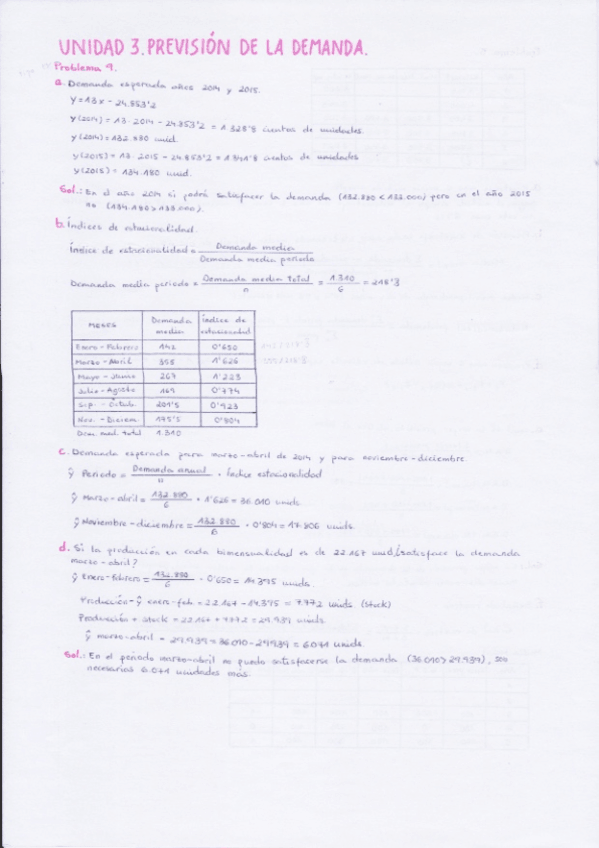 UNIDAD 3. PREVISIÓN DE LA DEMANDA.
Problema 9.
a. Demanda esperada años 2014 y 2015.
y = 13x - 24.853'2
y(2014) = 13 · 2014 - 24.853'2 = 1.328'8 cientos de unidades
y(2014) = 132.880 unid.
y(2015) = 13 · 2015 - 24.853'2 = 1.341'8 cientos de unidades
y(2015) = 134.180 unid.
Sol.: En el año 2014 si podrá satisfacer la demanda (132.880 < 133.000) pero en el año 2015
no (134.180 > 133.000).
b. Índices de estacionalidad.
Índice de estacionalidad = Demanda media / Demanda media periodo
Demanda media periodo = Demanda media total / n = 1.310 / 6 = 218'3
MESES Demanda media Índice de estacionalidad
Enero - Febrero 142 0'650
Marzo - Abril 355 1'626
Mayo - Junio 267 1'223
Julio - Agosto 169 0'774
Sep. - Octub. 201'5 0'923
Nov. - Diciem. 175'5 0'804
Dem. med. total 1.310
c. Demanda esperada para marzo-abril de 2014 y para noviembre-diciembre.
ŷ Periodo = Demanda anual / n · Índice estacionalidad
ŷ Marzo-abril = 132.880 / 6 · 1'626 = 36.010 unids.
ŷ Noviembre-diciembre = 132.880 / 6 · 0'804 = 17.806 unids.
d. Si la producción en cada bimensualidad es de 22.167 unid, ¿satisface la demanda
marzo-abril?
ŷ Enero-febrero = 132.880 / 6 · 0'650 = 14.395 unids.
Producción - ŷ enero-feb = 22.167 - 14.395 = 7.772 unids (stock)
Producción + stock = 22.167 + 7.772 = 29.939 unids.
ŷ marzo-abril - 29.939 = 36.010 - 29.939 = 6.071 unids.
Sol.: En el periodo marzo-abril no puede satisfacerse la demanda (36.010 > 29.939), son
necesarias 6.071 unidades más.